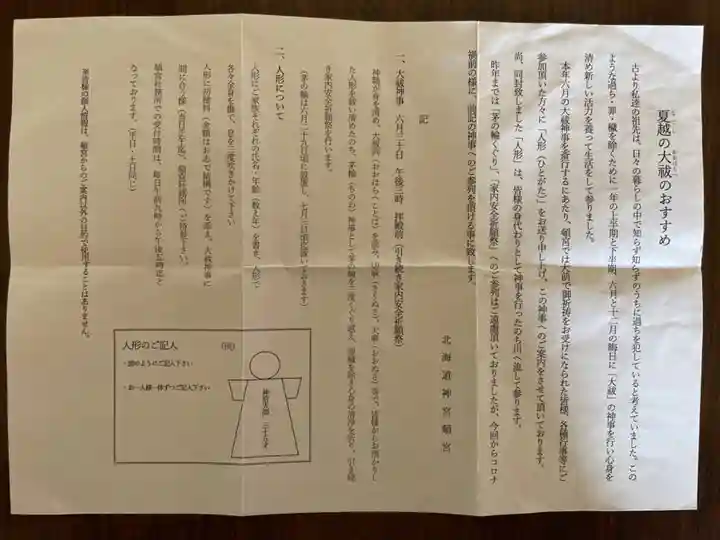 夏越の大祓のおすすめ
古より私達の祖先は、日々の暮らしの中で知らず知らずのうちに過ちを犯していると考えていました。この
ような過ち・罪・穢を除くために一年の上半期と下半期、六月と十二月の晦日に「大祓」の神事を行い心身を
清め新しい活力を養って生活をして参りました。
本年六月の大祓神事を斎行するにあたり、頓宮では大前で御祈祷をお受けになられた皆様、各種行事等にご
参加頂いた方々に「人形（ひとがた）」をお送り申し上げ、この神事へのご案内をさせて頂いております。
尚、同封致しました「人形」は、皆様の身代わりとして神事を行ったのち川へ流して参ります。
昨年までは「茅の輪くぐり」、「家内安全祈願祭」へのご参列はご遠慮頂いておりましたが、今回からコロナ
禍前の様に、前記の神事へのご参列を頂ける事に致します。
北海道神宮頓宮
記
一、大祓神事 六月三十日 午後三時 拝殿前（引き続き家内安全祈願祭）
神職が身を清め、大祓詞（おおはらへことば）を奏で、切麻（きりぬさ）、大麻（おおぬさ）等で、皆様からお預かりし
た人形を祓い清めたのち、茅輪（ちのわ）神事として茅の輪を三度くぐり
き家内安全祈願祭を行います。
（茅の輪は六月二十九日頃に設置し、七月三日頃に
二、人形について
人形にご家族それぞれの氏名・年齢（数え年）を書き、人形で
各々全身を撫で、息を三度吹きかけて下さい
人形に初穂料（金額はお志で結構です）を添え、大祓神事に
間に合う様（当日正午迄）、頓宮社務所へご持参下さい。
頓宮社務所での受付時間は、毎日午前九時から午後五時迄と
なっております。（平日・土日同じ）
※皆様の個人情報は、頓宮からのご案内以外の目的で使用することはありません。
人形のご記入 （例）
・図のようにご記入下さい
・お一人様一体ずつご記入下さい
神宮太郎 三十六才